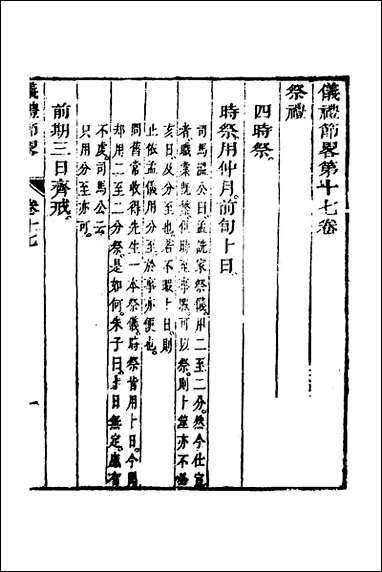 儀禮節畧第十七卷
祭禮
四時祭
時祭用仲月前旬卜日
司馬溫公曰孟詵家祭儀用二至二分然今仕宦
者職業既繁但時至事暇可以祭則卜筮亦不必
亥日及分至也若不暇卜日則
止依孟儀用分至於事亦便也
問舊常收得先生一本祭儀時祭皆用卜日今聞
却用二至二分祭是如何朱子曰卜日無定慮有
不虔司馬公云
只用分至亦可
前期三日齊戒
儀禮節畧
卷十七
一